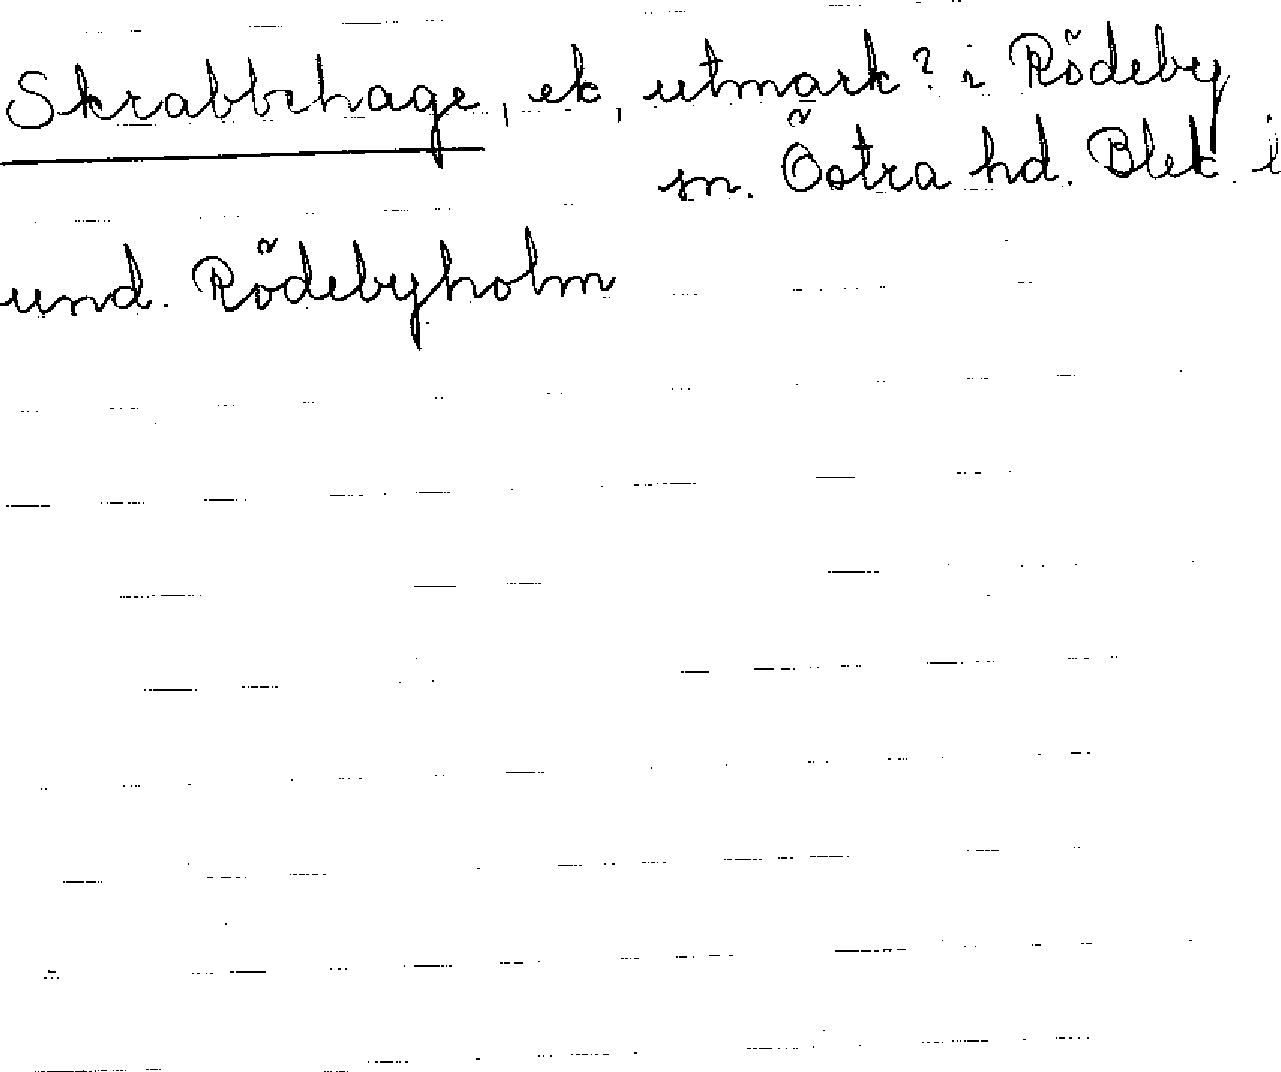 Skrabbehage, ek, utmark? i Rödeby
sn. Östra hd. Blek. l
und. Rödebyholm